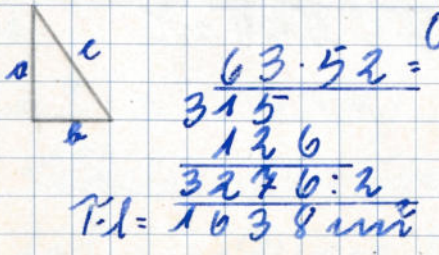 a
c
b
63·52=
315
126
3276:2
T-l= 1638 mm²